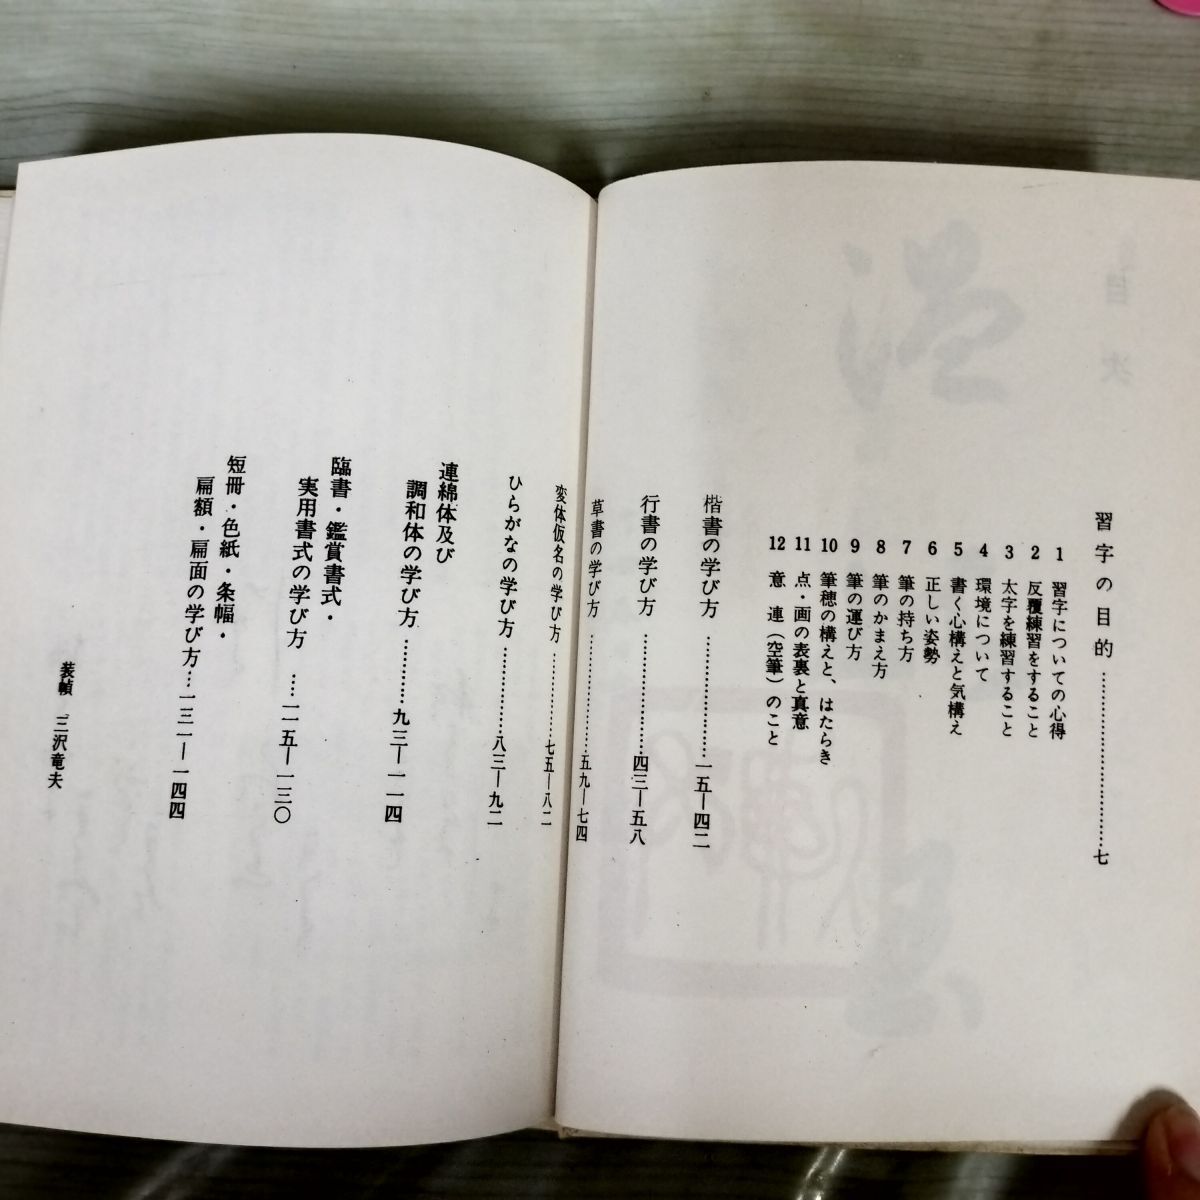 目次
習字の目的……………………七
1 習字についての心得
2 反覆練習をすること
3 太字を練習すること
4 環境について
5 書く心構えと気構え
6 正しい姿勢
7 筆の持ち方
8 筆のかまえ方
9 筆の運び方
10 筆穂の構えと、はたらき
11 点・画の表裏と真意
12 意連(空筆)のこと
楷書の学び方……………………一五―四二
行書の学び方……………………四三―五八
草書の学び方……………………五九―七四
変体仮名の学び方……………七五―八二
ひらがなの学び方……………八三―九二
連綿体及び
調和体の学び方…………九三―一一四
臨書・鑑賞書式・
実用書式の学び方……一一五―一三〇
短冊・色紙・条幅・
扁額・扁面の学び方…一三一―一四四
装幀 三沢竜夫